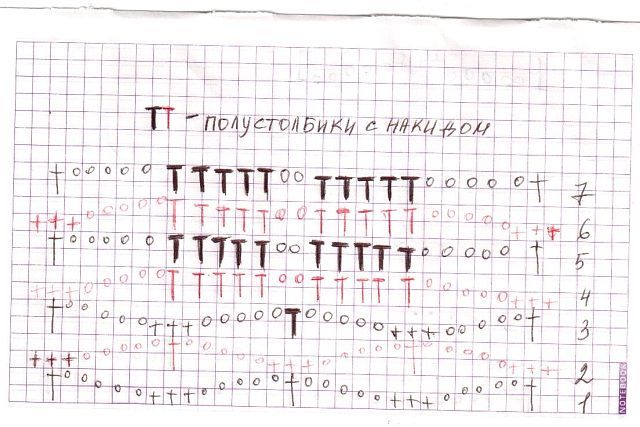 TT - ПОЛУСТОЛБИКИ С НАКИДОМ
7
6
5
4
3
2
1
NOTEBOOK